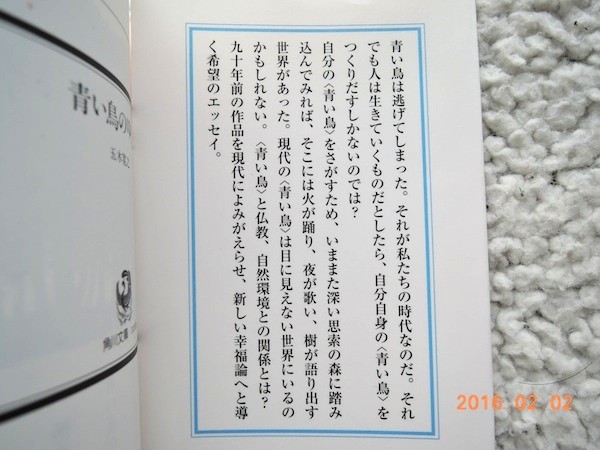 青い鳥は逃げてしまった。それが私たちの時代なのだ。それ
でも人は生きていくものだとしたら、自分自身の〈青い鳥〉を
つくりだすしかないのでは?
自分の〈青い鳥〉をさがすため、いままた深い思索の森に踏み
込んでみれば、そこには火が踊り、夜が歌い、樹が語り出す
世界があった。現代の〈青い鳥〉は目に見えない世界にいるの
かもしれない。〈青い鳥〉と仏教、自然環境との関係とは?
九十年前の作品を現代によみがえらせ、新しい幸福論へと導
く希望のエッセイ。
青い鳥の
五木寛之
角川文庫
2016 02 02